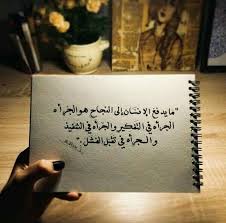 "ما يدفع الإنسان إلى النجاح هو الجرأه
الجرأه في التفكير والجرأه في التنفيذ
والجرأه في تقبل الفشل."